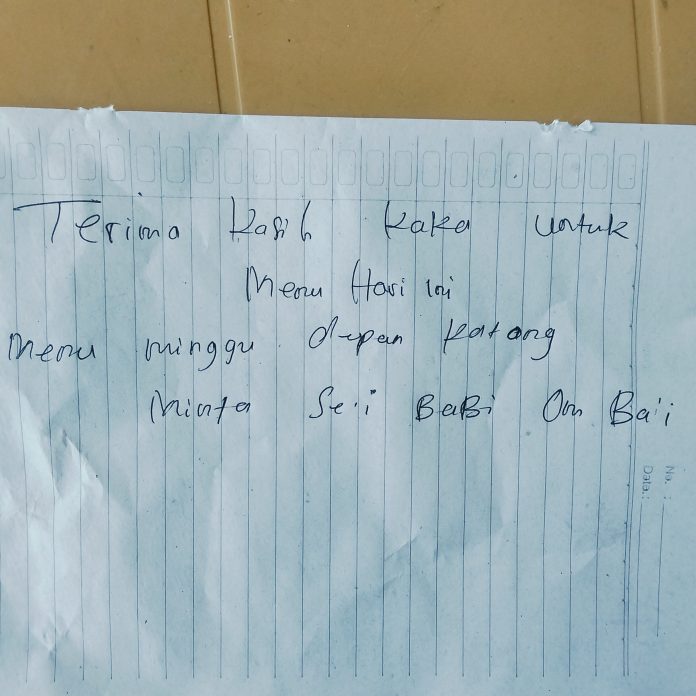 Terima Kasih kaka untuk
Menu Hari ini
Menu minggu depan Katong
Minta Se'i BaBi Om Ba'i
No. :
Date :